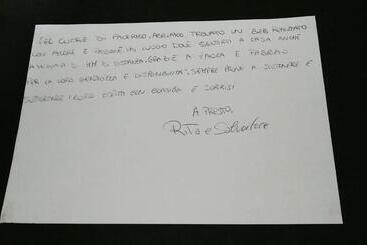 NEL CUORE DI PALERMO, ABBIAMO TROVATO UN B&B ARREDATO
CON AMORE E PASSIONE, UN LUOGO DOVE SENTIRSI A CASA ANCHE
A DI KM DI DISTANZA. GRAZIE A E FABRIZIO
PER LA LORO GENTILEZZA E DISPONIBILITÀ, SEMPRE PRONTI A SOSTENERE E
I LORO OSPITI CON CONSIGLI E SORRISI
A PRESTO,
Rita e Salvatore